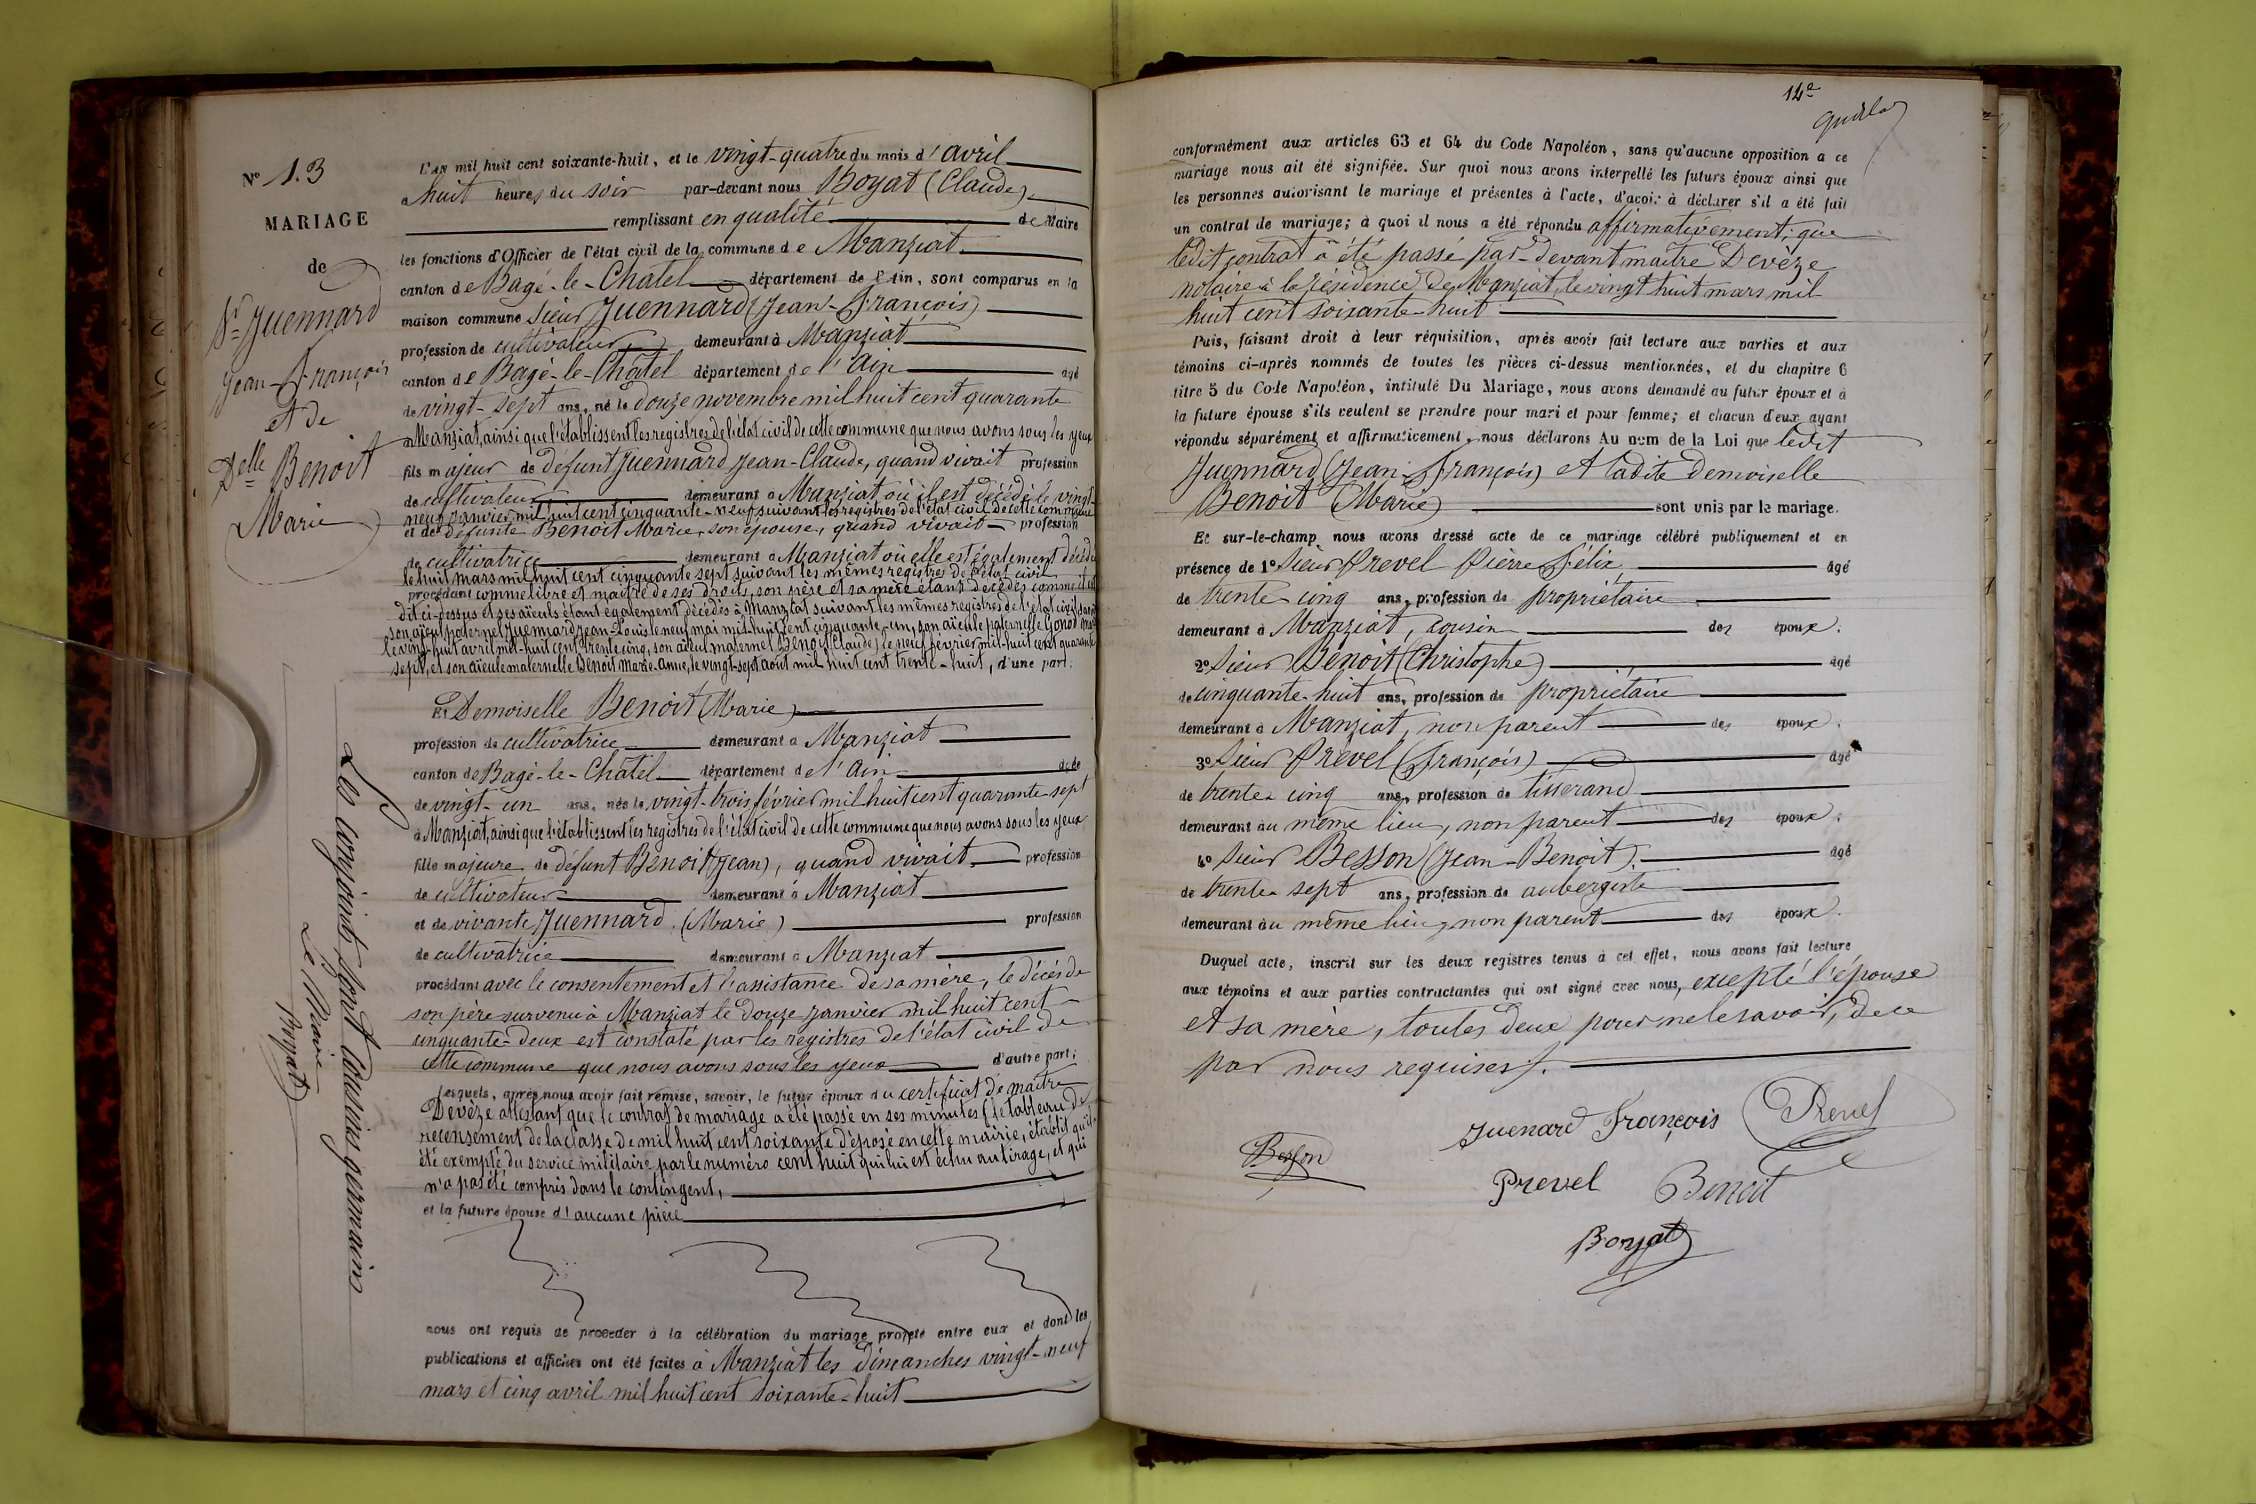 N° 13
MARIAGE
de
Sr Juennard
Jean-François
et de
Delle Benoit
Marie
Les conjoints sont cousins germains
Le Maire
Boyat
L'an mil huit cent soixante-huit, et le vingt-quatre du mois d'avril
à huit heures du soir par-devant nous Boyat (Claude)
remplissant en qualité de Maire
les fonctions d'Officier de l'état civil de la commune de Manziat
canton de Bagé-le-Châtel département de l'Ain, sont comparus en la
maison commune sieur Juennard (Jean-François)
profession de cultivateur demeurant à Manziat
canton de Bagé-le-Châtel département de l'Ain agé
de vingt-sept ans, né le douze novembre mil huit cent quarante
à Manziat, ainsi que l'établissent les registres de l'état civil de cette commune que nous avons sous les yeux
fils majeur de défunt Juennard Jean-Claude, quand vivait profession
de cultivateur demeurant à Manziat où il est décédé le vingt-
neuf janvier mil huit cent cinquante-neuf suivant les registres de l'état civil de cette commune
et de défunte Benoit Marie, son épouse, quand vivait profession
de cultivatrice demeurant à Manziat où elle est également décédée
le huit mars mil huit cent cinquante sept suivant les mêmes registres de l'état civil
procédant comme libre et maître de ses droits, son père et sa mère étant décédés comme il est
dit ci-dessus et ses aïeuls étant également décédés à Manziat suivant les mêmes registres de l'état civil savoir
son aïeul paternel Juennard Jean-Louis le neuf mai mil-huit cent cinquante-un, son aïeule paternelle Gonod
le vingt-huit avril mil-huit cent trente cinq, son aïeul maternel Benoit (Claude) le neuf février mil-huit cent quarante
sept, et son aïeule maternelle Benoit Marie-Anne, le vingt-sept août mil huit cent trente-huit, d'une part.
Et Demoiselle Benoit (Marie)
profession de cultivatrice demeurant à Manziat
canton de Bagé-le-Châtel département de l'Ain agée
de vingt-un ans, née le vingt-trois février mil huit cent quarante-sept
à Manziat, ainsi que l'établissent les registres de l'état civil de cette commune que nous avons sous les yeux
fille majeure de défunt Benoit (Jean), quand vivait profession
de cultivateur demeurant à Manziat
et de vivante Juennard (Marie) profession
de cultivatrice demeurant à Manziat
procédant avec le consentement et l'assistance de sa mère, le décès de
son père survenu à Manziat le douze janvier mil huit cent
cinquante-deux est constaté par les registres de l'état civil de
cette commune que nous avons sous les yeux d'autre part;
Lesquels, après nous avoir fait remise, savoir, le futur époux du certificat de maître
Devèze attestant que le contrat de mariage a été passé en ses minutes (le tableau de
recensement de la classe de mil huit cent soixante déposé en cette mairie, établit qu'il a
été exempté du service militaire par le numéro cent huit qui lui est échu au tirage, et qui
n'a pas été compris dans le contingent,
et la future épouse d'aucune pièce
nous ont requis de procéder à la célébration du mariage projeté entre eux et dont les
publications et affiches ont été faites à Manziat les dimanches vingt-neuf
mars et cinq avril mil huit cent soixante-huit
conformément aux articles 63 et 64 du Code Napoléon, sans qu'aucune opposition a ce
mariage nous ait été signifiée. Sur quoi nous avons interpellé les futurs époux ainsi que
les personnes autorisant le mariage et présentes à l'acte, d'avoir à déclarer s'il a été fait
un contrat de mariage; à quoi il nous a été répondu affirmativement; que
ledit contrat a été passé par-devant maître Devèze
notaire à la résidence de Manziat, le vingt huit mars mil
huit cent soixante-huit
Puis, faisant droit à leur réquisition, après avoir fait lecture aux parties et aux
témoins ci-après nommés de toutes les pièces ci-dessus mentionnées, et du chapitre 6
titre 5 du Code Napoléon, intitulé Du Mariage, nous avons demandé au futur époux et à
la future épouse s'ils veulent se prendre pour mari et pour femme; et chacun d'eux ayant
répondu séparément et affirmativement, nous déclarons Au nom de la Loi que ledit
Juennard (Jean-François) et ladite demoiselle
Benoit (Marie) sont unis par le mariage.
Et sur-le-champ nous avons dressé acte de ce mariage célébré publiquement et en
présence de 1° sieur Prevel Pierre Félix âgé
de trente cinq ans, profession de propriétaire
demeurant à Manziat, cousin des époux.
2° sieur Benoit (Christophe) âgé
de cinquante-huit ans, profession de propriétaire
demeurant à Manziat, non parent des époux.
3° sieur Prevel (François) âgé
de trente cinq ans, profession de tisserand
demeurant au même lieu, non parent des époux.
4° sieur Besson (Jean-Benoit) âgé
de trente sept ans, profession de aubergiste
demeurant au même lieu, non parent des époux.
Duquel acte, inscrit sur les deux registres tenus à cet effet, nous avons fait lecture
aux témoins et aux parties contractantes qui ont signé avec nous, excepté l'épouse
et sa mère, toutes deux pour ne le savoir, de ce
par nous requises.
Juenard François Prevel
Besson
Prevel Benoit
Boyat